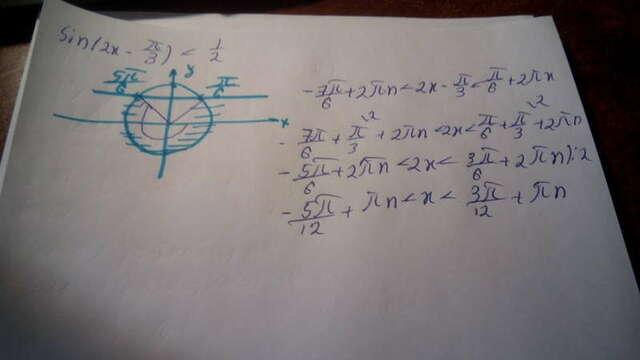 sin(2x - π/3) < 1/2
5π/6 y π/6
x
-7π/6 + 2πn < 2x - π/3 < π/6 + 2πn
-7π/6 + π/3 \2 + 2πn < 2x < π/6 + π/3 \2 + 2πn
-5π/6 + 2πn < 2x < 3π/6 + 2πn):2
-5π/12 + πn < x < 3π/12 + πn